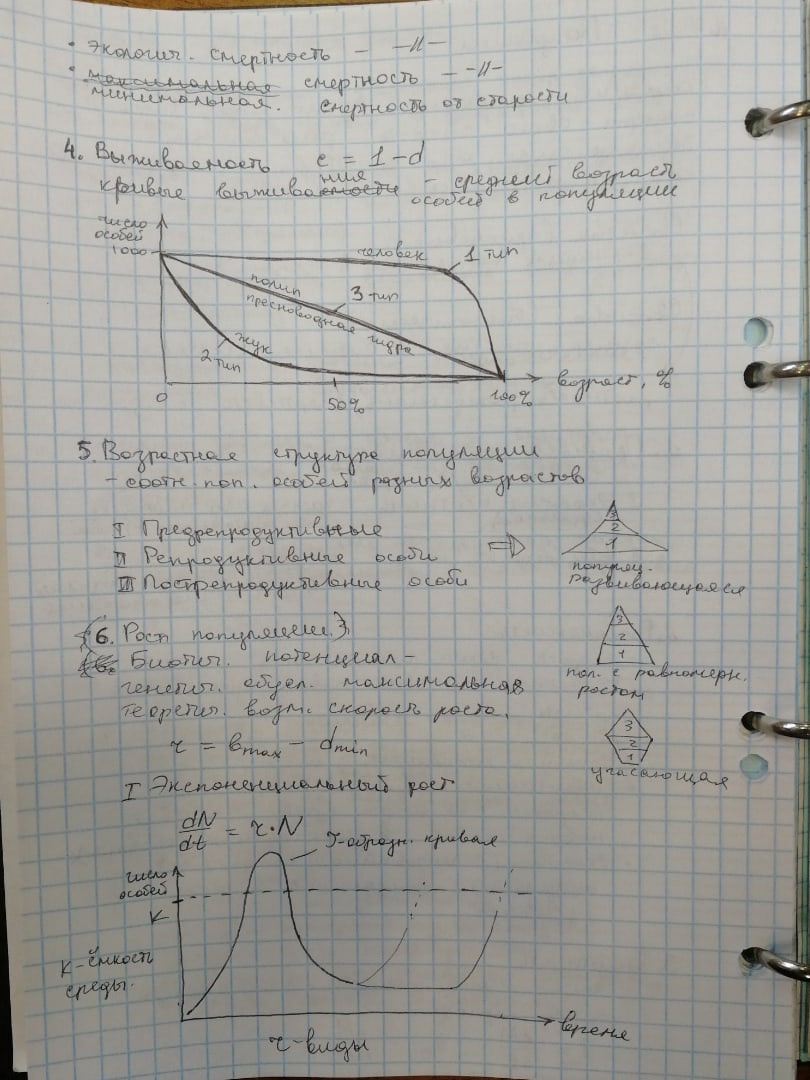 • экологич. смертность – –//–
• максимальная смертность – –//–
минимальная. смертность от старости
4. Выживаемость e = 1 – d
кривые выживания – средний возраст
особей в популяции
число
особей
1000
человек
1 тип
полип
3 тип
пресноводная гидра
жук
2 тип
0
50%
100%
возраст, %
5. Возрастная структура популяции
– соотн. поп. особей разных возрастов
I Предрепродуктивные
II Репродуктивные особи
III Пострепродуктивные особи
3
2
1
популяц.
развивающаяся
{6. Рост популяции.}
3
2
1
Биотич. потенциал –
генетич. обусл. максимальная
теоретич. возм. скорость роста.
пол. с равномерн.
ростом
3
2
1
угасающая
r = bmax – dmin
I Экспоненциальный рост
dN/dt = r·N
J-образн. кривая
число
особей
K
K-ёмкость
среды.
время
r-виды